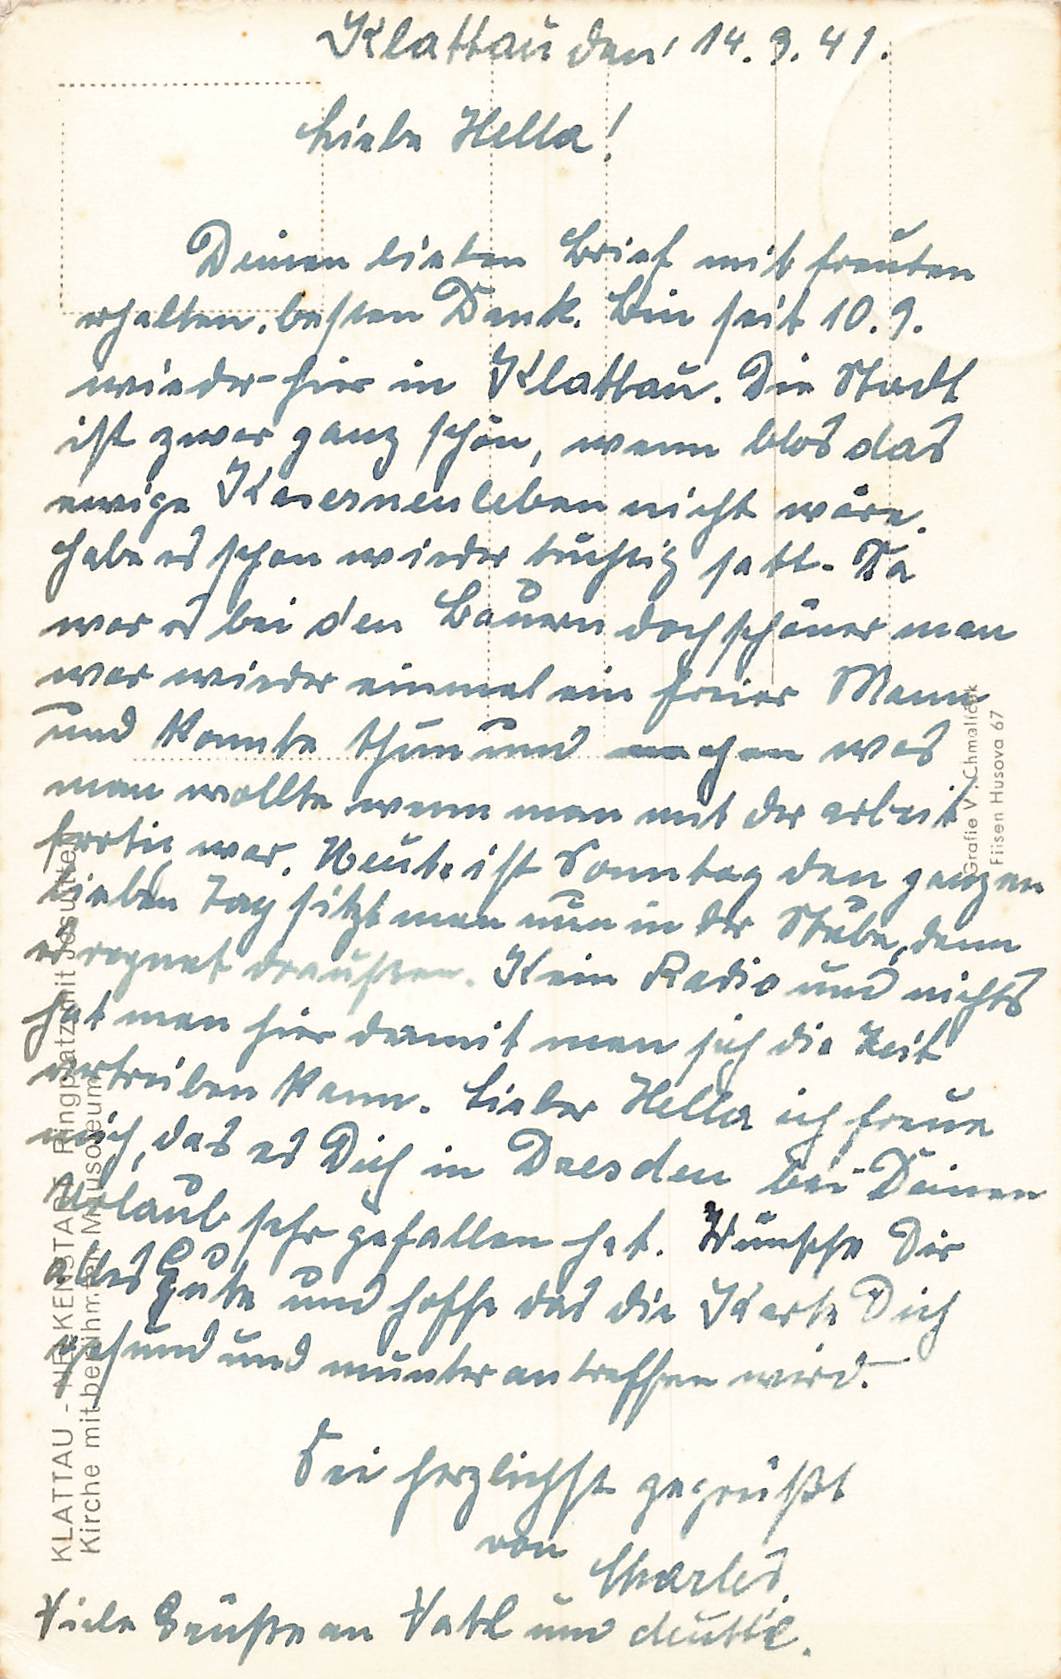 Klattau den 14.9.41.
Liebe Hella!
Deinen lieben Brief mit freuten
erhalten, besten Dank. Bin seit 10.9.
wieder hier in Klattau. Die Stadt
ist zwar ganz schön, wenn blos das
ewige Kasernenleben nicht wäre.
Habe es schon wieder tüchtig satt. Da
war es bei den Bauern doch schöner man
war wieder einmal ein freier Mann
und konnte thun und machen was
man wollte wenn man mit der arbeit
fertig war. Heute ist Sonntag den ganzen
lieben Tag sitzt man nun in der Stube, denn
es regnet draußen. Kein Radio und nichts
hat man hier damit man sich die Zeit
vertreiben kann. Lieber Hella ich freue
mich, das es Dich in Dresden bei Deinen
Urlaub sehr gefallen hat. Wünsche Dir
alles Gute und hoffe das die Karte Dich
gesund und munter antreffen wird.
Sei herzlichst gegrüßt
von Charles.
Viele Grüße an Vatl und
KLATTAU - NELKENSTADT, Ringplatz mit Jesuiten
Kirche mit berühmten Mausoleum
Grafie V. Chmelíček
Pilsen Husova 67